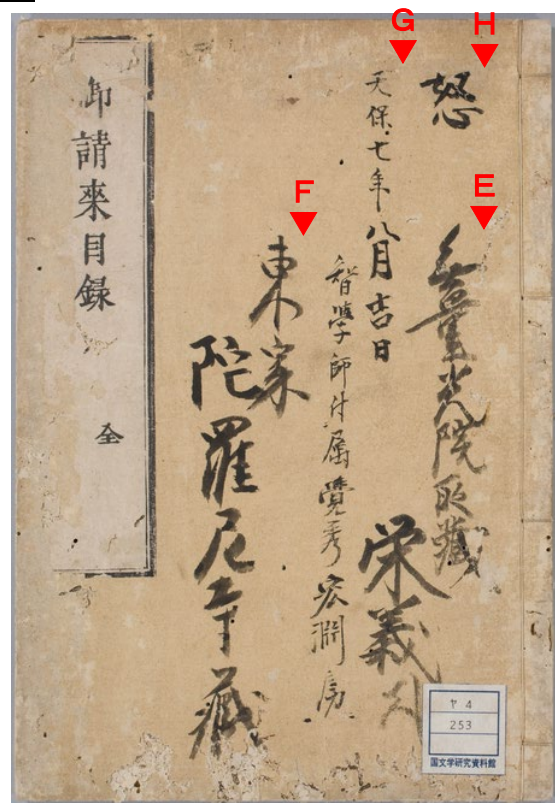 G
H
F
E
怒
無量光院所藏
栄義
天保七年八月吉日
智學師付属覺秀宏淵房
東寀
陀羅尼寺藏
御請來目録 全
ヤ 4
253
国文学研究資料館